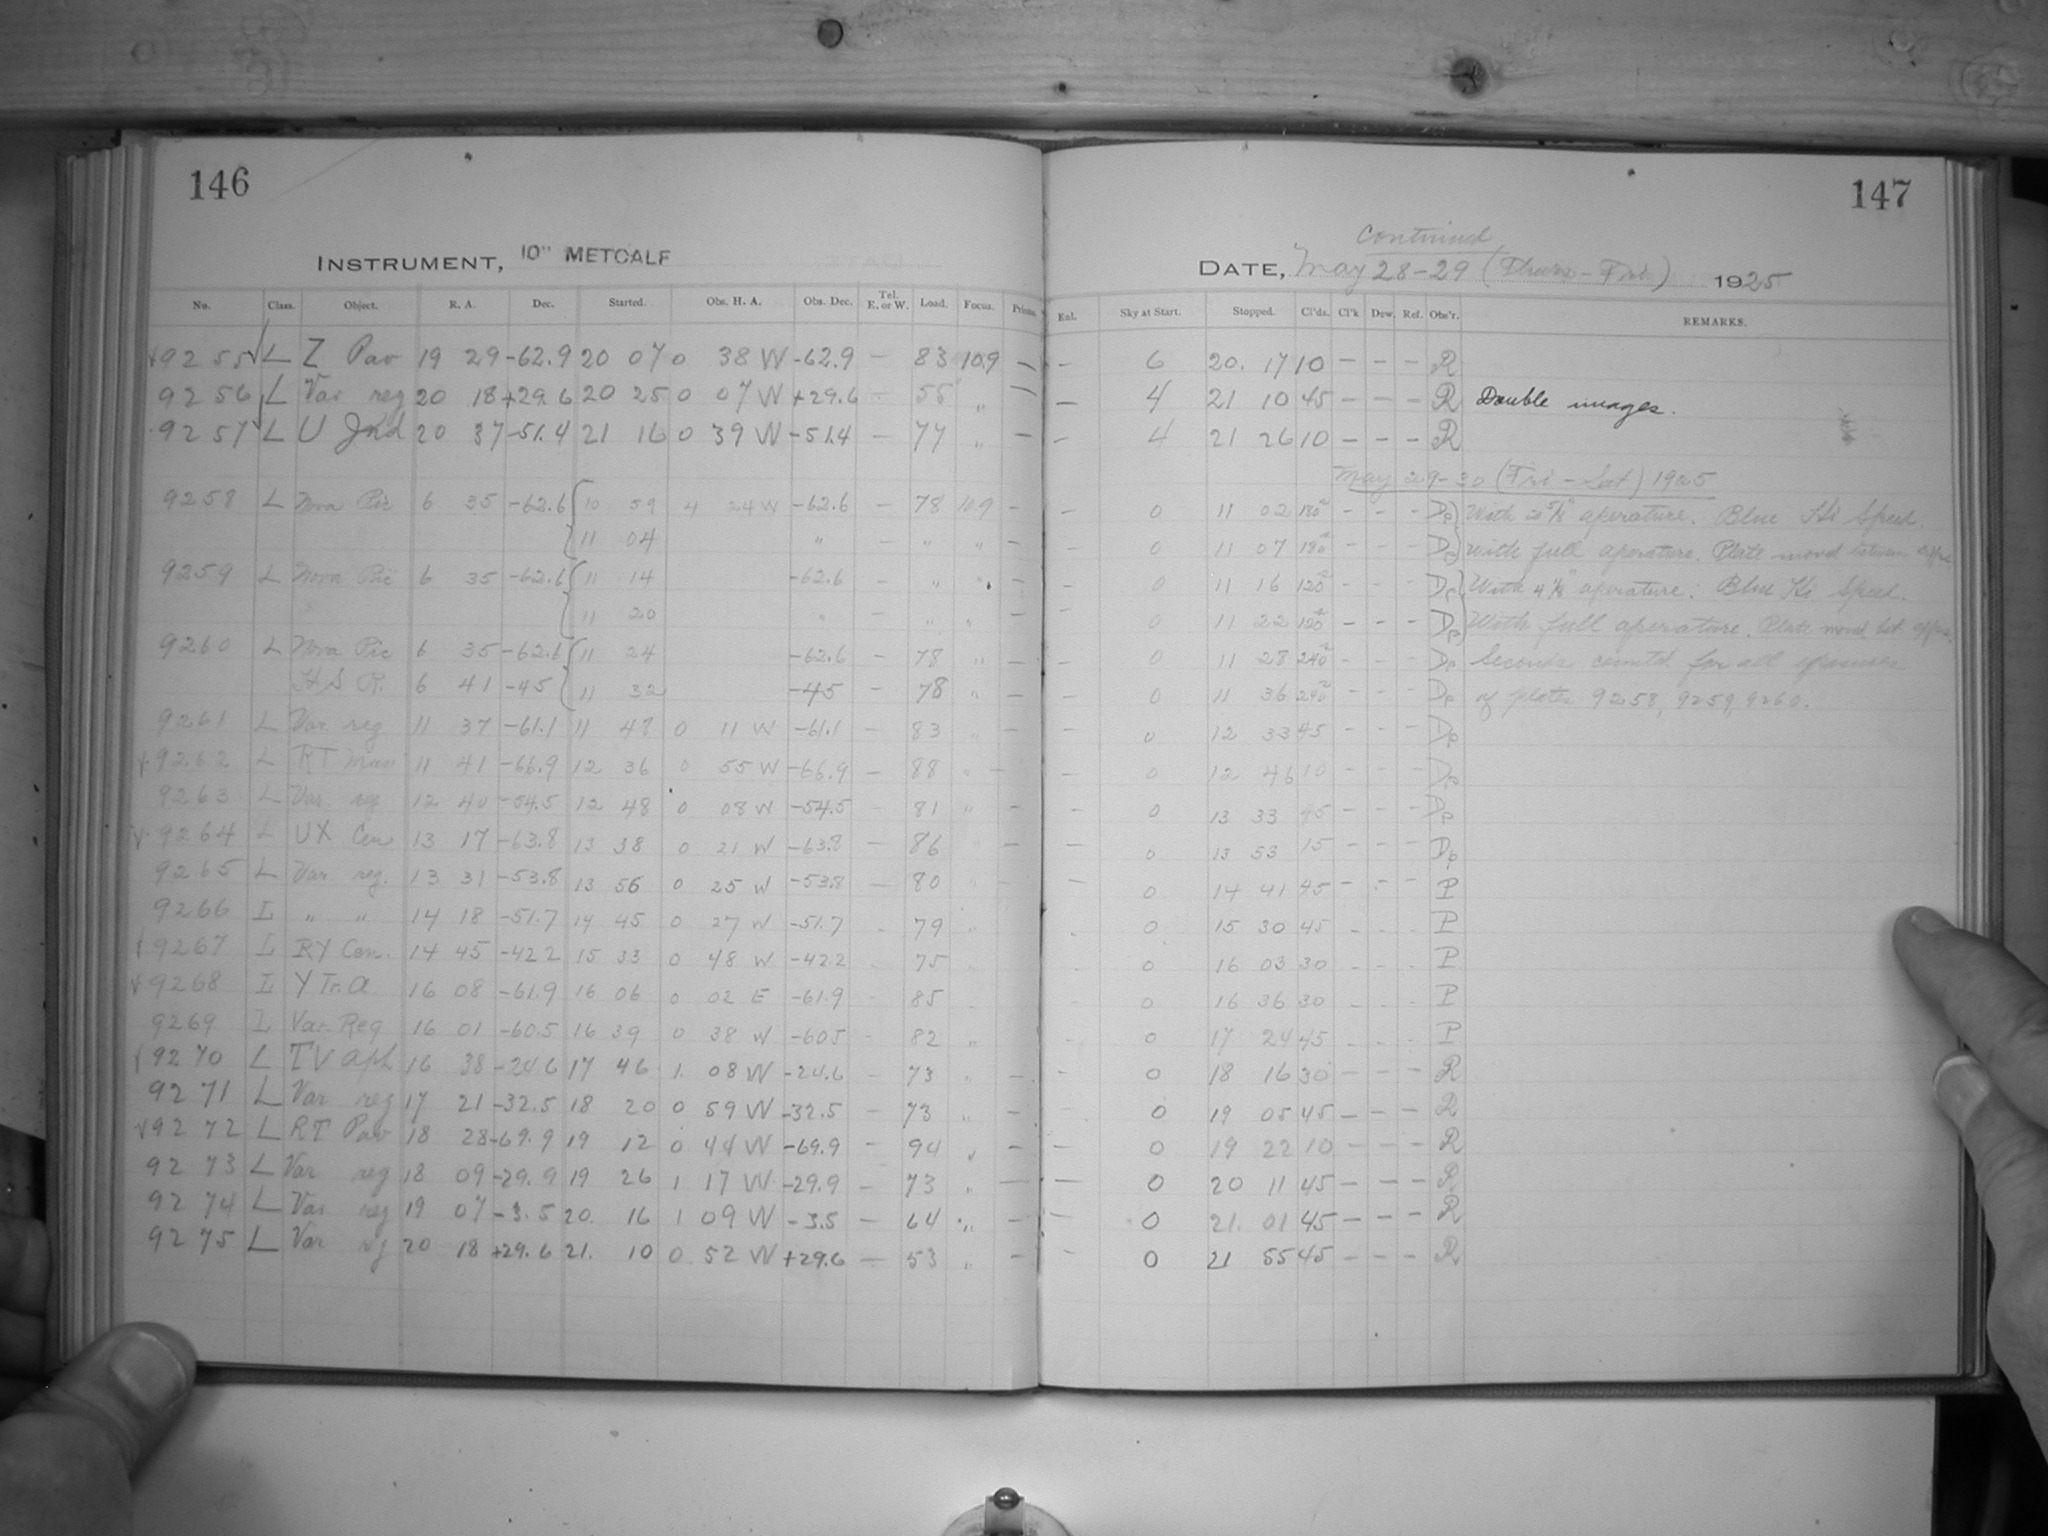 146
147
INSTRUMENT, 10" METCALF
continued
DATE, May 28-29 (Thurs - Fri) 1925
No. Class. Object. R. A. Dec. Started. Obs. H. A. Obs. Dec. Tel. E. or W. Load. Focus. Prisms. Enl. Sky at Start. Stopped. Cl'ds. Cl'k Dew. Ref. Obs'r. REMARKS.
9255 L Z Pav 19 29 -62.9 20 07 0 38 W -62.9 — 83 10.9 — — 6 20. 17 10 — — — R
9256 L Var reg 20 18 +29.6 20 25 0 07 W +29.6 — 55 " — — 4 21 10 45 — — — R Double images.
9257 L U Ind 20 37 -51.4 21 16 0 39 W -51.4 — 77 " — — 4 21 26 10 — — — R
May 29-30 (Fri - Sat) 1925
9258 L Nova Pic 6 35 -62.6 10 59 4 24 W -62.6 — 78 10.9 — — 0 11 02 180s — — — Dp With aperature. Blue Hi Speed.
11 04 " — " " — — 0 11 07 180s — — — Dp With full aperature. Plate moved between
9259 L Nova Pic 6 35 -62.6 11 14 -62.6 — " " — — 0 11 16 120s — — — Dp With 4 1/8" aperature. Blue Hi Speed.
11 20 " — " " — — 0 11 22 120s — — — Dp With full aperature. Plate moved bet.
9260 L Nova Pic 6 35 -62.6 11 24 -62.6 — 78 " — — 0 11 28 240s — — — Dp Seconds counted for all exposures
H S R. 6 41 -45 11 32 -45 — 78 " — — 0 11 36 240s — — — Dp of plates 9258, 9259, 9260.
9261 L Var. reg 11 37 -61.1 11 48 0 11 W -61.1 — 83 " — — 0 12 33 45 — — — Dp
9262 L RT Mus 11 41 -66.9 12 36 0 55 W -66.9 — 88 " — — 0 12 46 10 — — — Dp
9263 L Var. reg 12 40 -54.5 12 48 0 08 W -54.5 — 81 " — — 0 13 33 45 — — — Dp
9264 L UX Cen 13 17 -63.8 13 38 0 21 W -63.8 — 86 — — 0 13 53 15 — — — Dp
9265 L Var. reg. 13 31 -53.8 13 56 0 25 W -53.8 — 80 " — — 0 14 41 45 — — — P
9266 L " " 14 18 -51.7 14 45 0 27 W -51.7 - 79 " - 0 15 30 45 - - - P
9267 L RY Cen. 14 45 -42.2 15 33 0 48 W -42.2 - 75 - 0 16 03 30 - - - P
9268 L Y Tr. A 16 08 -61.9 16 06 0 02 E -61.9 - 85 - 0 16 36 30 - - - P
9269 L Var. Reg 16 01 -60.5 16 39 0 38 W -60.5 - 82 " - 0 17 24 45 - - - P
9270 L TV Oph 16 38 -24.6 17 46 1. 08 W -24.6 — 73 " — — 0 18 16 30 — — — R
9271 L Var reg 17 21 -32.5 18 20 0 59 W -32.5 — 73 " — — 0 19 05 45 — — — R
9272 L RT Pav 18 28 -69.9 19 12 0 44 W -69.9 — 94 " — — 0 19 22 10 — — — R
9273 L Var reg 18 09 -29.9 19 26 1 17 W -29.9 — 73 " — — 0 20 11 45 — — — R
9274 L Var reg 19 07 -3.5 20. 16 1 09 W -3.5 — 64 " — — 0 21. 01 45 — — — R
9275 L Var rg 20 18 +29.6 21. 10 0 52 W +29.6 — 53 " — — 0 21 55 45 — — — R